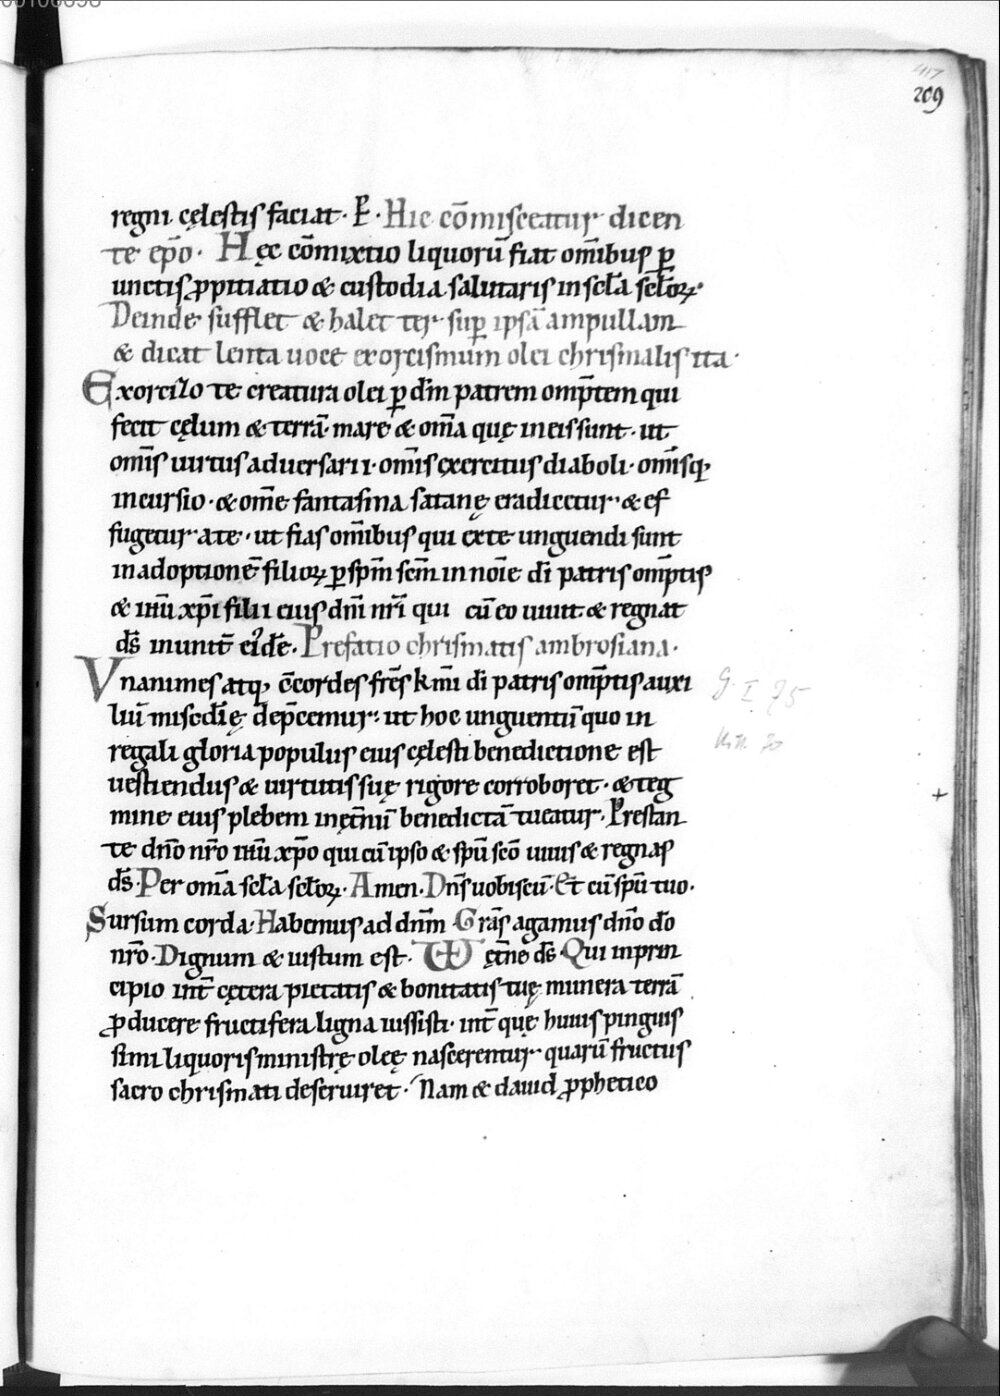 417
209
regni cęlestis faciat · P · Hic cōmisceatur dicen
te epō · Hęc cōmixtio liquorū fiat om̄ibus ꝑ
unctis ꝓpitiatio & custodia salutaris in scl̄a scl̄oꝝ ·
Deinde sufflet & halet ter sup̄ ipsā ampullam
& dicat lenta uoce exorcismum olei chrismalis ita ·
Exorcizo te creatura olei ꝑ dm̄ patrem omp̄tem qui
fecit cęlum & terrā mare & om̄a quę in eis sunt · ut
om̄is uirtus aduersarii · om̄is exercitus diaboli · om̄isq;
incursio · & om̄e fantasma satanę eradicetur · & ef
fugetur a te · ut fias om̄ibus qui ex te unguendi sunt
in adoptionē filioꝝ ꝑ sp̄m sc̄m in nōie dī patris omp̄tis
& ihū xp̄i filii eius dn̄i nr̄i qui cū eo uiuit & regnat
ds̄ in unit̄ eiꝰdē · Prefatio chrismatis ambrosiana ·
Vnanimes atq; c̄cordes fr̄es k̄mi dī patris omp̄tis auxi
liū miscd̄ię dep̄cemur · ut hoc unguentū quo in
regali gloria populus eius cęlesti benedictione est
uestiendus & uirtutis suę rigore corroboret · & teg
mine eius plebem in ęt̄nū benedictā tueatur · Prestan
te dn̄o nr̄o ihū xp̄o qui cū ipso & sp̄u sc̄o uiuis & regnas
ds̄ · Per om̄a scl̄a scl̄oꝝ · Amen · Dn̄s uobiscū · Et cū sp̄u tuo ·
Sursum corda · Habemus ad dn̄m Grās agamus dn̄o dō
nr̄o · Dignum & iustum est · VD ęt̄ne ds̄ Qui in prin
cipio int̄ cętera pietatis & bonitatis tuę munera terrā
ꝓducere fructifera ligna iussisti · int̄ quę huius pinguis
simi liquoris ministrę oleę nascerentur quarū fructus
sacro chrismati deseruiret · Nam & dauid ꝓphetico
G. I 75
+